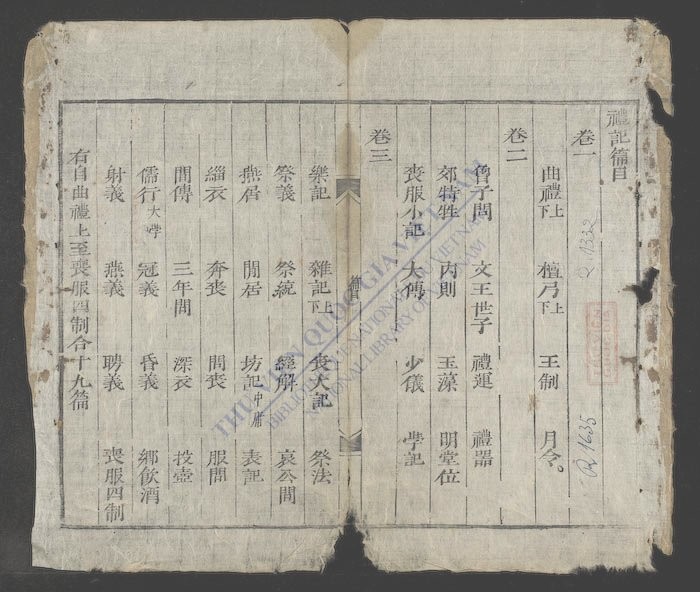 禮記篇目
卷一
曲禮上下 檀弓上下 王制 月令。
卷二
曾子問 文王世子 禮運 禮器
郊特牲 內則 玉藻 明堂位
喪服小記 大傳 少儀 學記
卷三
樂記 雜記上下 喪大記 祭法
祭義 祭統 經解 哀公問
燕居 閒居 坊記 中庸 表記
緇衣 奔喪 問喪 服問
間傳 三年問 深衣 投壺
儒行 大學 冠義 昏義 鄉飲酒
射義 燕義 聘義 喪服四制
右自曲禮上至喪服四制合十九篇
篇目
R.1332
R.1635
THƯ VIỆN QUỐC GIA VIỆT NAM
BIBLIOTHÈQUE NATIONALE DU VIETNAM
NATIONAL LIBRARY OF VIETNAM